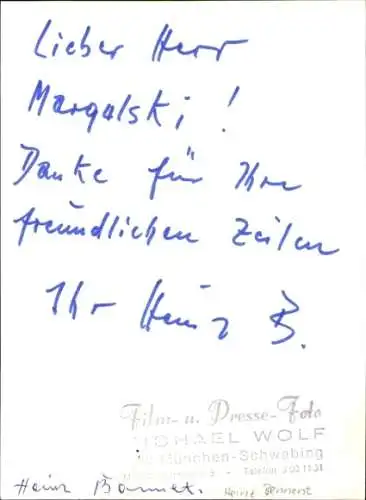 Lieber Herr
Margalski!
Danke für Ihre
freundlichen Zeilen
Ihr Heinz B.
Film- u. Presse-Foto
MICHAEL WOLF
München-Schwabing
Telefon
Heinz Bennent.
Heinz Bennent